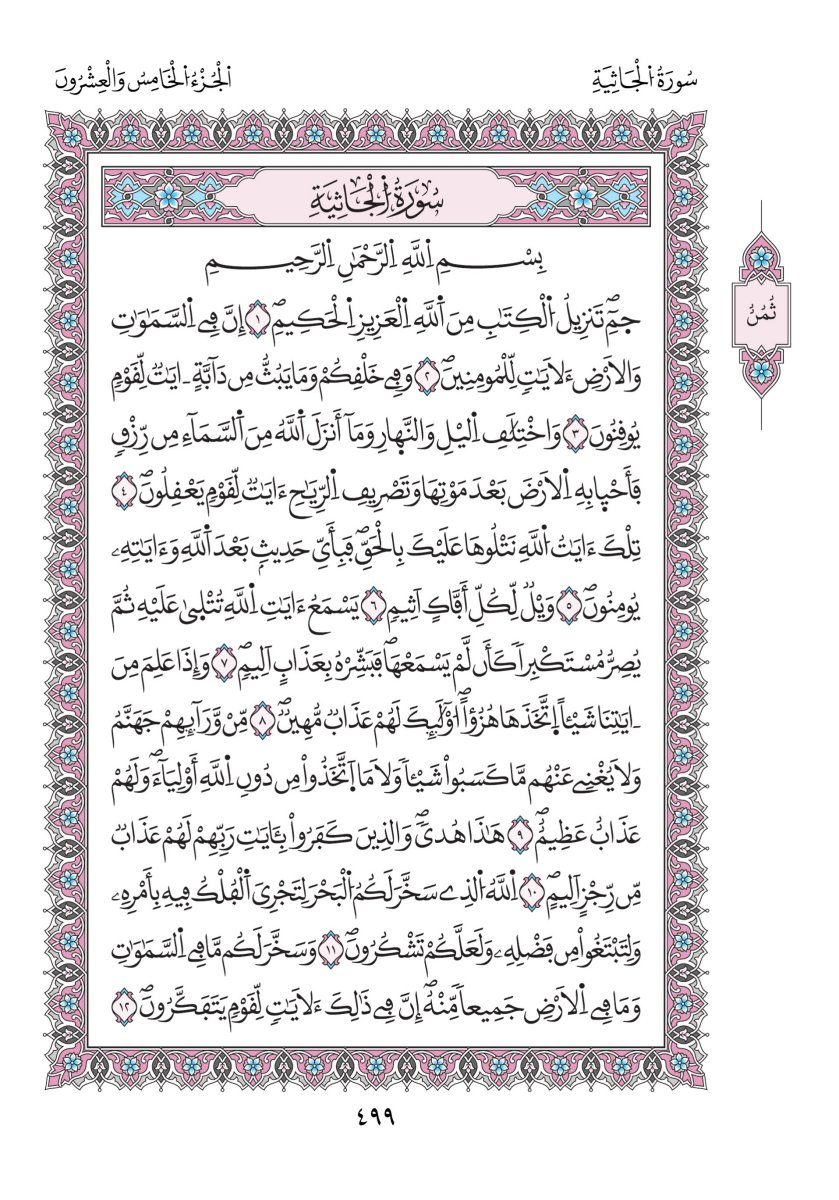 سُورَةُ اُلْجَاثِيَةِ
اَلْجُزْءُ اُلْخَامِسُ وَالْعِشْرُونَ
سُورَةُ اُلْجَاثِيَةِ
ثُمُنُ
بِسْمِ اِللَّهِ اِلرَّحْمَٰنِ اِلرَّحِيمِ
حمٓۖ تَنزِيلُ اُلْكِتَٰبِ مِنَ اَللَّهِ اِلْعَزِيزِ اِلْحَكِيمِۖ ١ إِنَّ فِے اِلسَّمَٰوَٰتِ
وَالَارْضِ ءَلَايَٰتٖ لِّلْمُومِنِينَۖ ٢ وَفِے خَلْقِكُمْ وَمَا يَبُثُّ مِن دَآبَّةٍ ـ ايَٰتٞ لِّقَوْمٖ
يُوقِنُونَۖ ٣ وَاخْتِلَٰفِ اِليْلِ وَالنَّه۪ارِ وَمَآ أَنزَلَ اَللَّهُ مِنَ اَلسَّمَآءِ مِن رِّزْقٖ
فَأَحْي۪ا بِهِ اِلَارْضَ بَعْدَ مَوْتِهَا وَتَصْرِيفِ اِلرِّيَٰحِ ءَايَٰتٞ لِّقَوْمٖ يَعْقِلُونَۖ ٤
تِلْكَ ءَايَٰتُ اُللَّهِ نَتْلُوهَا عَلَيْكَ بِالْحَقِّۖ فَبِأَيِّ حَدِيثِۢ بَعْدَ اَللَّهِ وَءَايَٰتِهِۦ
يُومِنُونَۖ ٥ وَيْلٞ لِّكُلِّ أَفَّاكٍ اَثِيمٖ ٦ يَسْمَعُ ءَايَٰتِ اِللَّهِ تُتْل۪يٰ عَلَيْهِ ثُمَّ
يُصِرُّ مُسْتَكْبِراٗ كَأَن لَّمْ يَسْمَعْهَاۖ فَبَشِّرْهُ بِعَذَابٍ اَلِيمٖۖ ٧ وَإِذَا عَلِمَ مِنَ
ـ ايَٰتِنَا شَيْـٔاً اِتَّخَذَهَا هُزُؤاًۖ ا۟وْلَٰٓئِكَ لَهُمْ عَذَابٞ مُّهِينٞۖ ٨ مِّنْ وَّرَآئِهِمْ جَهَنَّمُ
وَلَا يُغْنِے عَنْهُم مَّا كَسَبُواْ شَيْـٔاٗ وَلَا مَا اَ۪تَّخَذُواْ مِن دُونِ اِللَّهِ أَوْلِيَآءَۖ وَلَهُمْ
عَذَابٌ عَظِيمٌۖ ٩ هَٰذَا هُديٗۖ وَالذِينَ كَفَرُواْ بِـَٔايَٰتِ رَبِّهِمْ لَهُمْ عَذَابٞ
مِّن رِّجْزٍ اَلِيمٍۖ ١٠ اِللَّهُ اُلذِے سَخَّرَ لَكُمُ اُلْبَحْرَ لِتَجْرِيَ اَلْفُلْكُ فِيهِ بِأَمْرِهِۦ
وَلِتَبْتَغُواْ مِن فَضْلِهِۦ وَلَعَلَّكُمْ تَشْكُرُونَۖ ١١ وَسَخَّرَ لَكُم مَّا فِے اِلسَّمَٰوَٰتِ
وَمَا فِے اِلَارْضِ جَمِيعاٗ مِّنْهُۖ إِنَّ فِے ذَٰلِكَ ءَلَايَٰتٖ لِّقَوْمٖ يَتَفَكَّرُونَۖ ١٢
٤٩٩